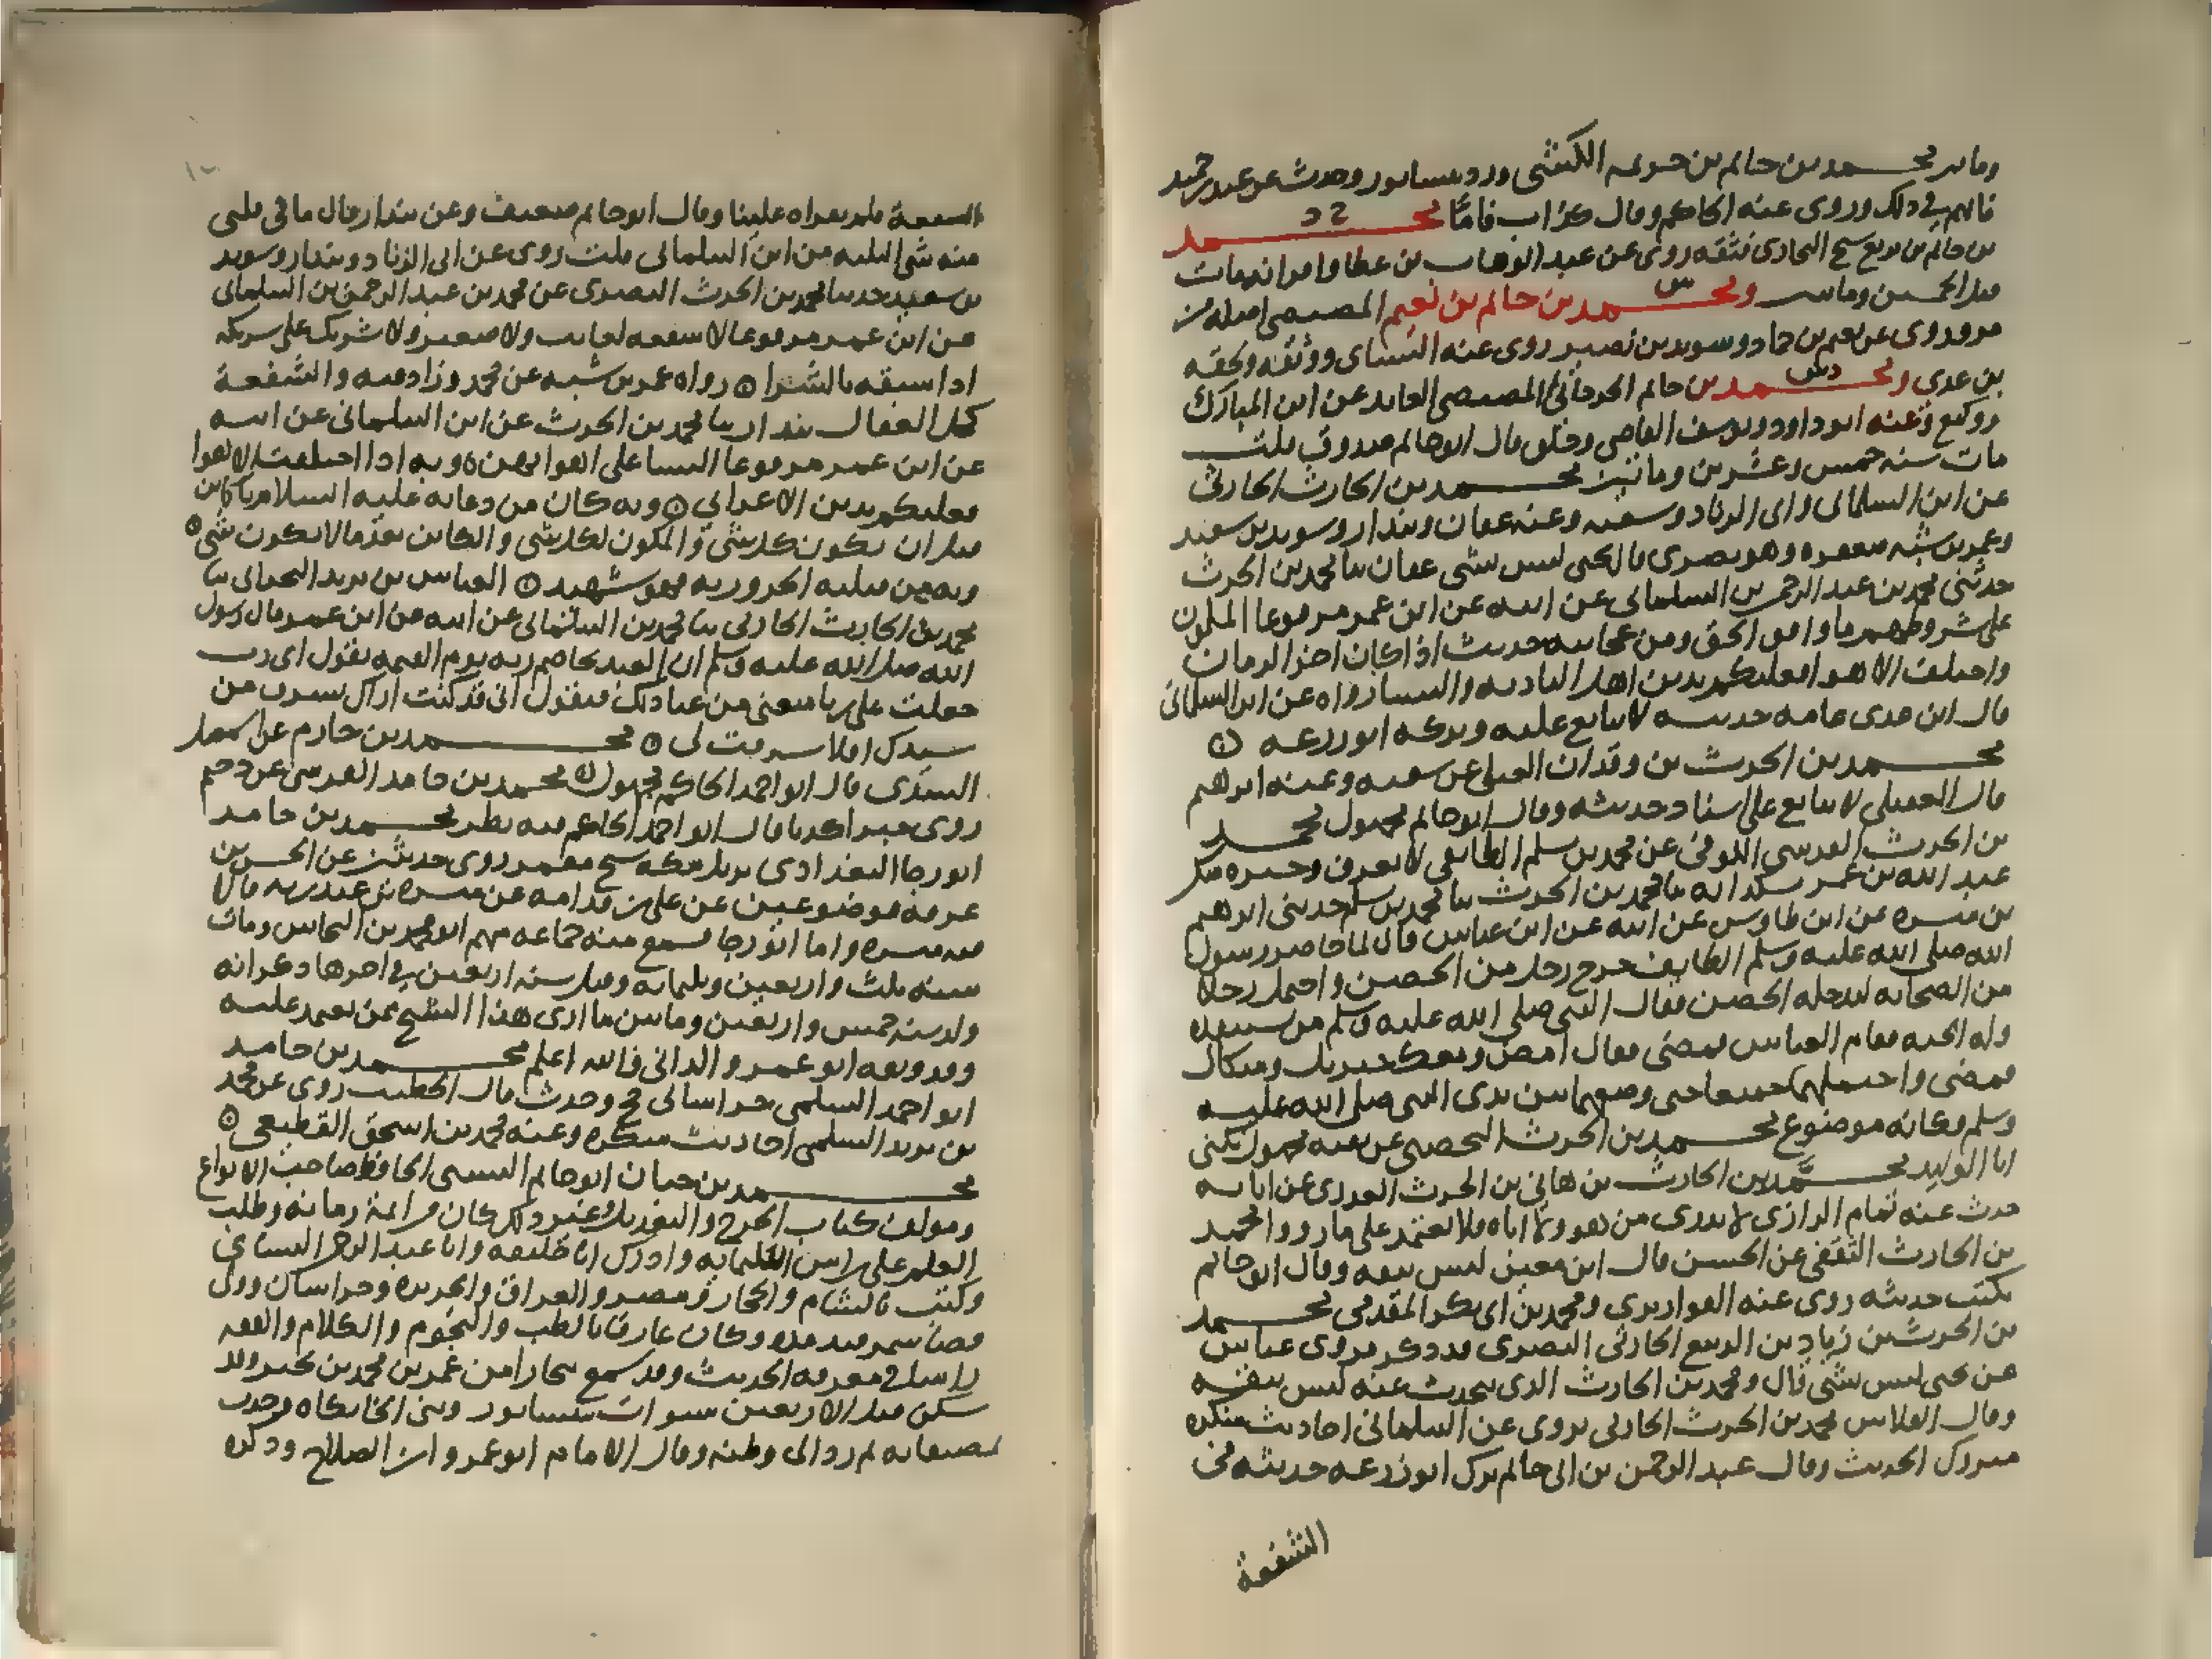 ومات محمد بن حاتم بن خزيمه الكشي ورد نيسابور وحدث عن عبد بن حميد
فاتهم في ذلك وروى عنه الحاكم وقال كذاب فامّا محمد
بن حاتم بن بزيع شيخ البخاري فثقه روى عن عبد الوهاب بن عطا واقرانه مات
قبل الخمسين ومايتين ومحمد بن حاتم بن نعيم المصيصي اصله من
مرو روى عن نعيم بن حماد وسويد بن نصير روى عنه النسائ ووثقه ولحقه
بن عدي ومحمد بن حاتم الجرجاني المصيصي العابد عن ابن المبارك
ووكيع وعنه ابو داود ويوسف القاضي وخلق قال ابو حاتم صدوق قلت
مات سنه خمس وعشرين ومايتين محمد بن الحارث الحارثي
عن ابن البيلماني وابي الزناد وشعبه وعنه عفان وبندار وسويد بن سعيد
وعمر بن شبه وهو بصري قال يحيى ليس بشي عفان ثنا محمد بن الحرث
حدثني محمد بن عبد الرحمن بن البيلماني عن ابيه عن ابن عمر مرفوعا المسلمون
على شروطهم ما وافق الحق ومن عجايبه حديث اذا كان اخر الزمان
واختلفت الاهوا فعليكم بدين اهل الباديه والنسا رواه عن ابن البيلماني
قال ابن عدي عامه حديثه لا يتابع عليه وتركه ابو زرعه
محمد بن الحرث بن وقدان العتكي عن شعبه وعنه ابراهيم
قال العقيلي لا يتابع على اسناد حديثه وقال ابو حاتم مجهول محمد
بن الحرث القرشي الكوفي عن محمد بن مسلم الطايفي لا يعرف وخبره منكر
عبد الله بن عمر مشكدانه ثنا محمد بن الحرث ثنا محمد بن مسلم حدثني ابراهيم
بن ميسره عن ابن طاوس عن ابيه عن ابن عباس قال لما حاصر رسول
الله صلى الله عليه وسلم الطايف خرج رجل من الحصن واحتمل رجلا
من الصحابه ليدخله الحصن فقال النبي صلى الله عليه وسلم من يستنقذه
وله الجنه فقام العباس فمضى فقال امض ومعك جبريل وميكال
فمضى واحتملهما جميعا حتى وضعهما بين يدي النبي صلى الله عليه
وسلم وكانه موضوع محمد بن الحرث اليحصبي عن بقيه مجهول يكنى
ابا الوليد محمّد بن الحارث بن هاني بن الحرث العذري عن ابايه
حدث عنه تمام الرازي لا يدرى من هو ولا اباه ولا يعتمد على ما رووا محمد
بن الحارث الثقفي عن الحسن قال ابن معين ليس بثقه وقال ابو حاتم
يكتب حديثه روى عنه القواريري ومحمد بن ابي بكر المقدمي محمد
بن الحرث بن زياد بن الربيع الحارثي البصري قد ذكر فروى عباس
عن يحيى ليس بشي قال ومحمد بن الحارث الذي يحدث عنه ليس بثقه
وقال الفلاس محمد بن الحرث الحارثي يروى عن البيلماني احاديث منكره
متروك الحديث وقال عبد الرحمن بن ابي حاتم ترك ابو زرعه حديثه في
الشفعة
الشفعة فلم يقراه علينا وقال ابو حاتم ضعيف وعن بندار قال ما في قلبي
منه شي البليه من ابن البيلماني قلت روى عن ابي الزناد وبندار وسويد
بن سعيد حدثنا محمد بن الحرث البصري عن محمد بن عبد الرحمن بن البيلماني
عن ابن عمر مرفوعا لا شفعه لغايب ولا صغير ولا شريك على شريكه
اذا سبقه بالشرا رواه عمر بن شبه عن محمد وزاد فيه والشفعة
كحل العقال بندار ثنا محمد بن الحرث عن ابن البيلماني عن ابيه
عن ابن عمر مرفوعا النسا على اهوايهن وبه اذا اختلفت الاهوا
فعليكم بدين الاعرابي وبه كان من دعايه عليه السلام يا كاين
قبل ان يكون كل شي والمكون لكل شي والكاين بعد ما لا يكون شي
وبه من قتلته الحروريه فهو شهيد العباس بن يزيد البحراني ثنا
محمد بن الحارث الحارثي ثنا محمد بن البيلماني عن ابيه عن ابن عمر قال رسول
الله صلى الله عليه وسلم ان العبد يخاصم ربه يوم القيمه يقول اي رب
جعلت علي ربا ممن عبادك فيقول اني قد كنت اراك تسرق من
سيدك افلا سرقت لي محمد بن حازم عن اسمعيل
السدّي قال ابو احمد الحاكم مجهول محمد بن حامد القرشي عن دحيم
روى خبرا كذبا قال ابو احمد الحاكم فيه نظر محمد بن حامد
ابو رجا البغدادي نزيل مكه شيخ معمر روى حديثين عن الحسن بن
عرفه موضوعين عن علي بن قدامه عن ميسره بن عبد ربه قال
ميسره واما ابو رجا فسمع منه جماعه منهم ابو محمد بن النحاس ومات
سنه ثلث واربعين وثلثمايه وقيل سنه اربعين في اخرها ذكر انه
ولد سنه خمس واربعين ومايتين ما ارى هذا الشيخ ممن يعتمد عليه
وقد وثقه ابو عمرو الداني فالله اعلم محمد بن حامد
ابو احمد السلمي خراساني حج وحدث قال الخطيب روى عن محمد
بن يزيد السلمي احاديث منكره وعنه محمد بن اسحق القطيعي
محمد بن حبان ابو حاتم البستي الحافظ صاحب الانواع
ومولف كتاب الجرح والتعديل وغير ذلك كان من ايمة زمانه وطلب
العلم على راس الثلثمايه وادرك ابا خليفه وابا عبد الرحمن النساي
وكتب بالشام والحجاز ومصر والعراق والجزيره وخراسان وولي
قضا سمرقند مده وكان عارفا بالطب والنجوم والكلام والفقه
راسا في معرفه الحديث وقد سمع ببخارا من عمر بن محمد بن بجير ولد
سكن قبل الاربعين سنوات بنيسابور وبنى الخانكاه وحدث
بمصنفاته ثم رد الى وطنه وقال الامام ابو عمرو ابن الصلاح وذكره